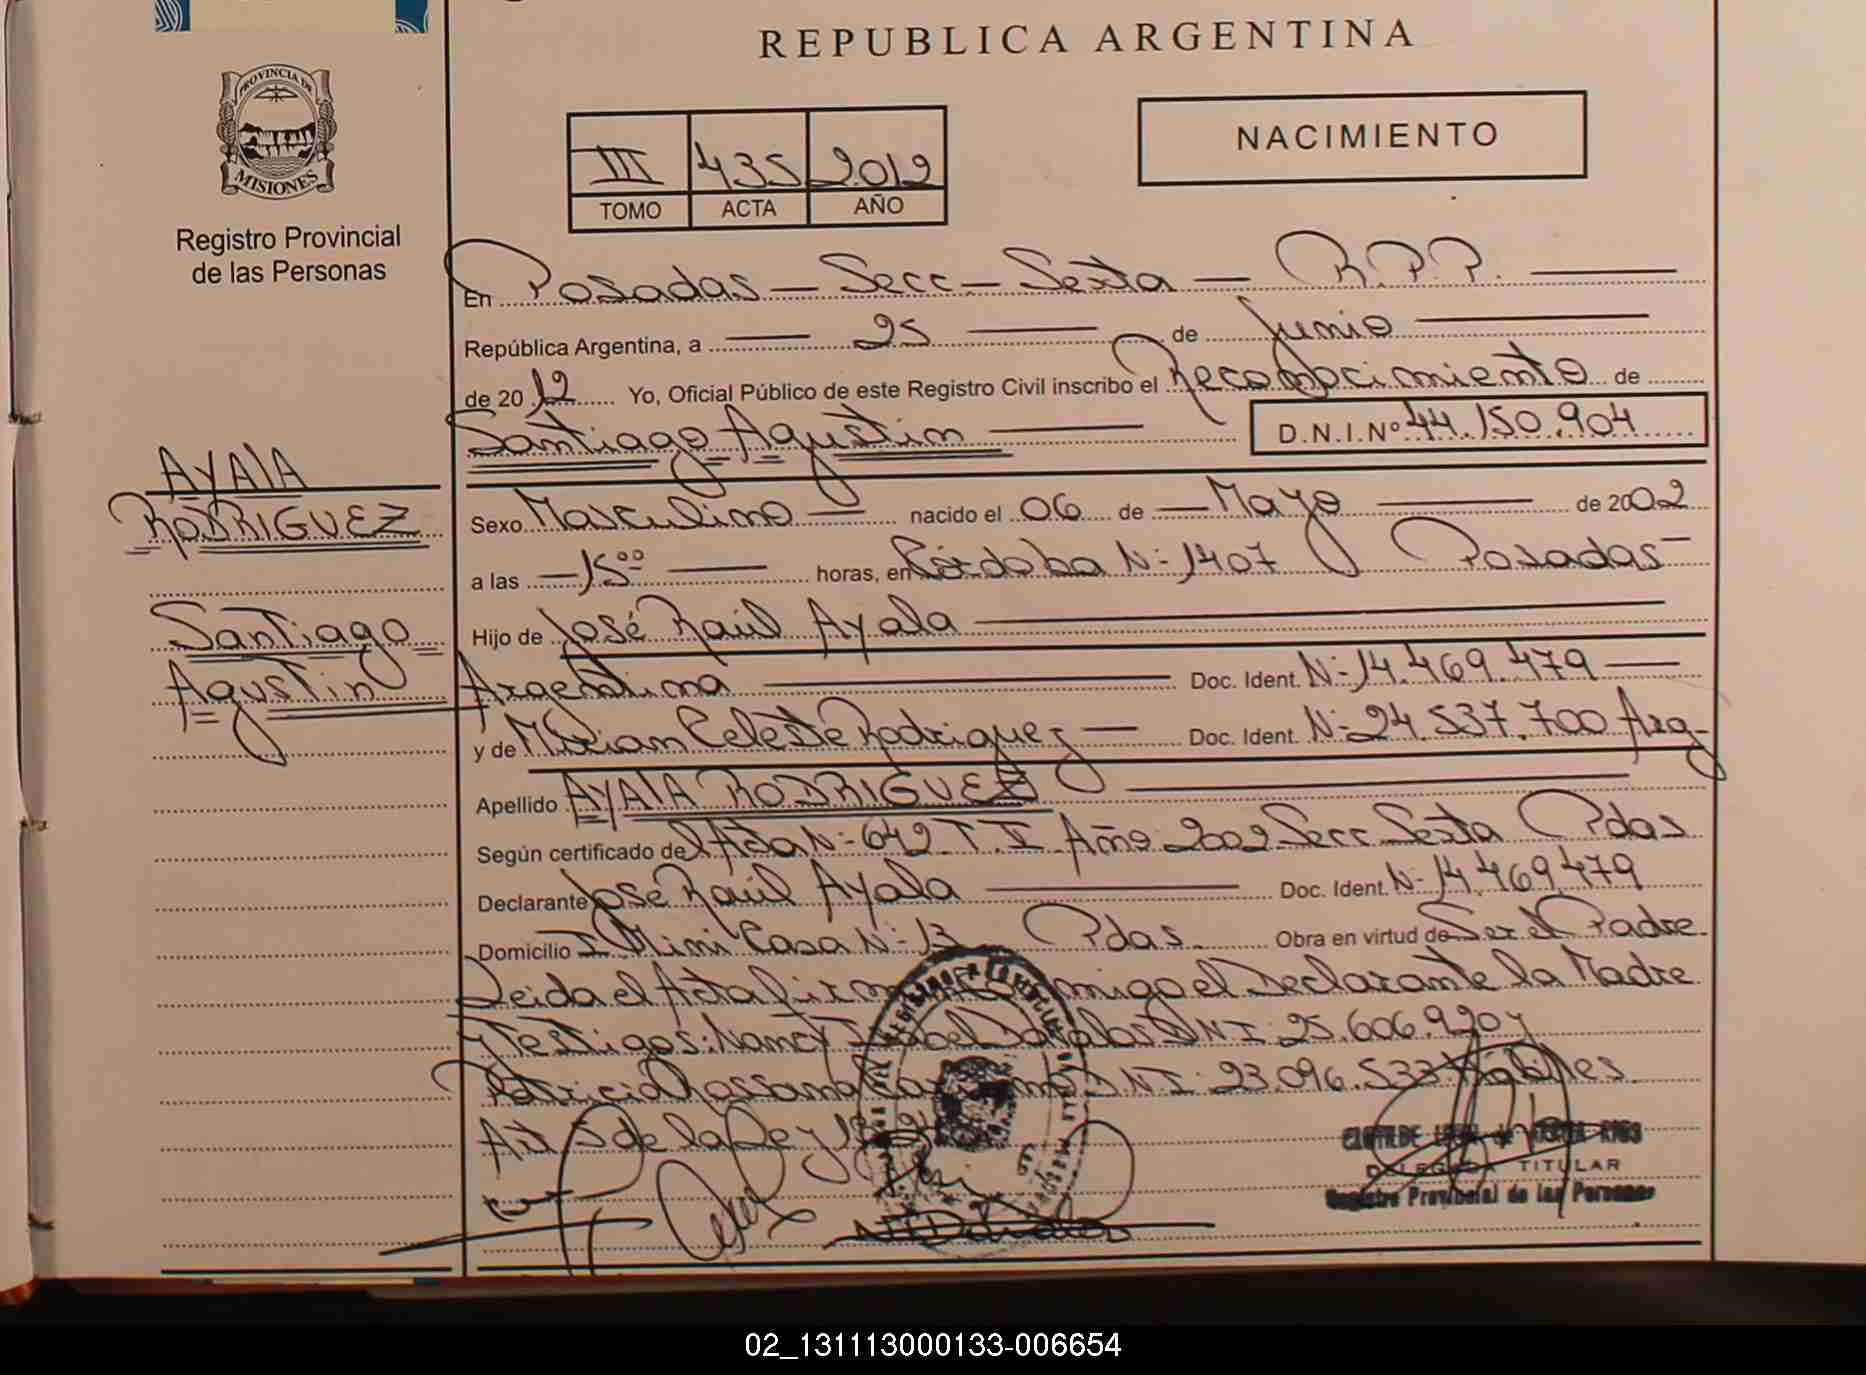 REPUBLICA ARGENTINA
PROVINCIA DE
MISIONES
Registro Provincial
de las Personas
NACIMIENTO
III 435 2012
TOMO ACTA AÑO
En Posadas — Secc — Sexta — R.P.P.
República Argentina, a — 25 — de Junio
de 2012 Yo, Oficial Público de este Registro Civil inscribo el Reconocimiento de
Santiago Agustin — D.N.I. Nº 44.150.904
AYALA
RODRIGUEZ
Santiago
Agustin
Sexo Masculino — nacido el 06 de — Mayo — de 2002
a las — 15⁰⁰ — horas, en Córdoba N- 1407 Posadas -
Hijo de José Raúl Ayala —
Argentina — Doc. Ident. N- 14.469.479 —
y de Mirian Celeste Rodriguez — Doc. Ident. N- 24.537.700 Arg-
Apellido AYALA RODRIGUEZ —
Según certificado del Acta N- 642 T. II Año 2002 Secc Sexta Pdas
Declarante José Raúl Ayala — Doc. Ident. N- 14.469.479
Domicilio Mini Casa N- 13 Pdas. Obra en virtud de Ser el Padre
Leida el Acta conmigo el Declarante la Madre
y Testigos: Nancy Isabel Davalos DNI: 25.606.920 y
Patricia Rossana DNI: 23.096.533 Hábiles
Art 5 de la Ley
DELEGADA TITULAR
Registro Provincial de las Personas
02_131113000133-006654